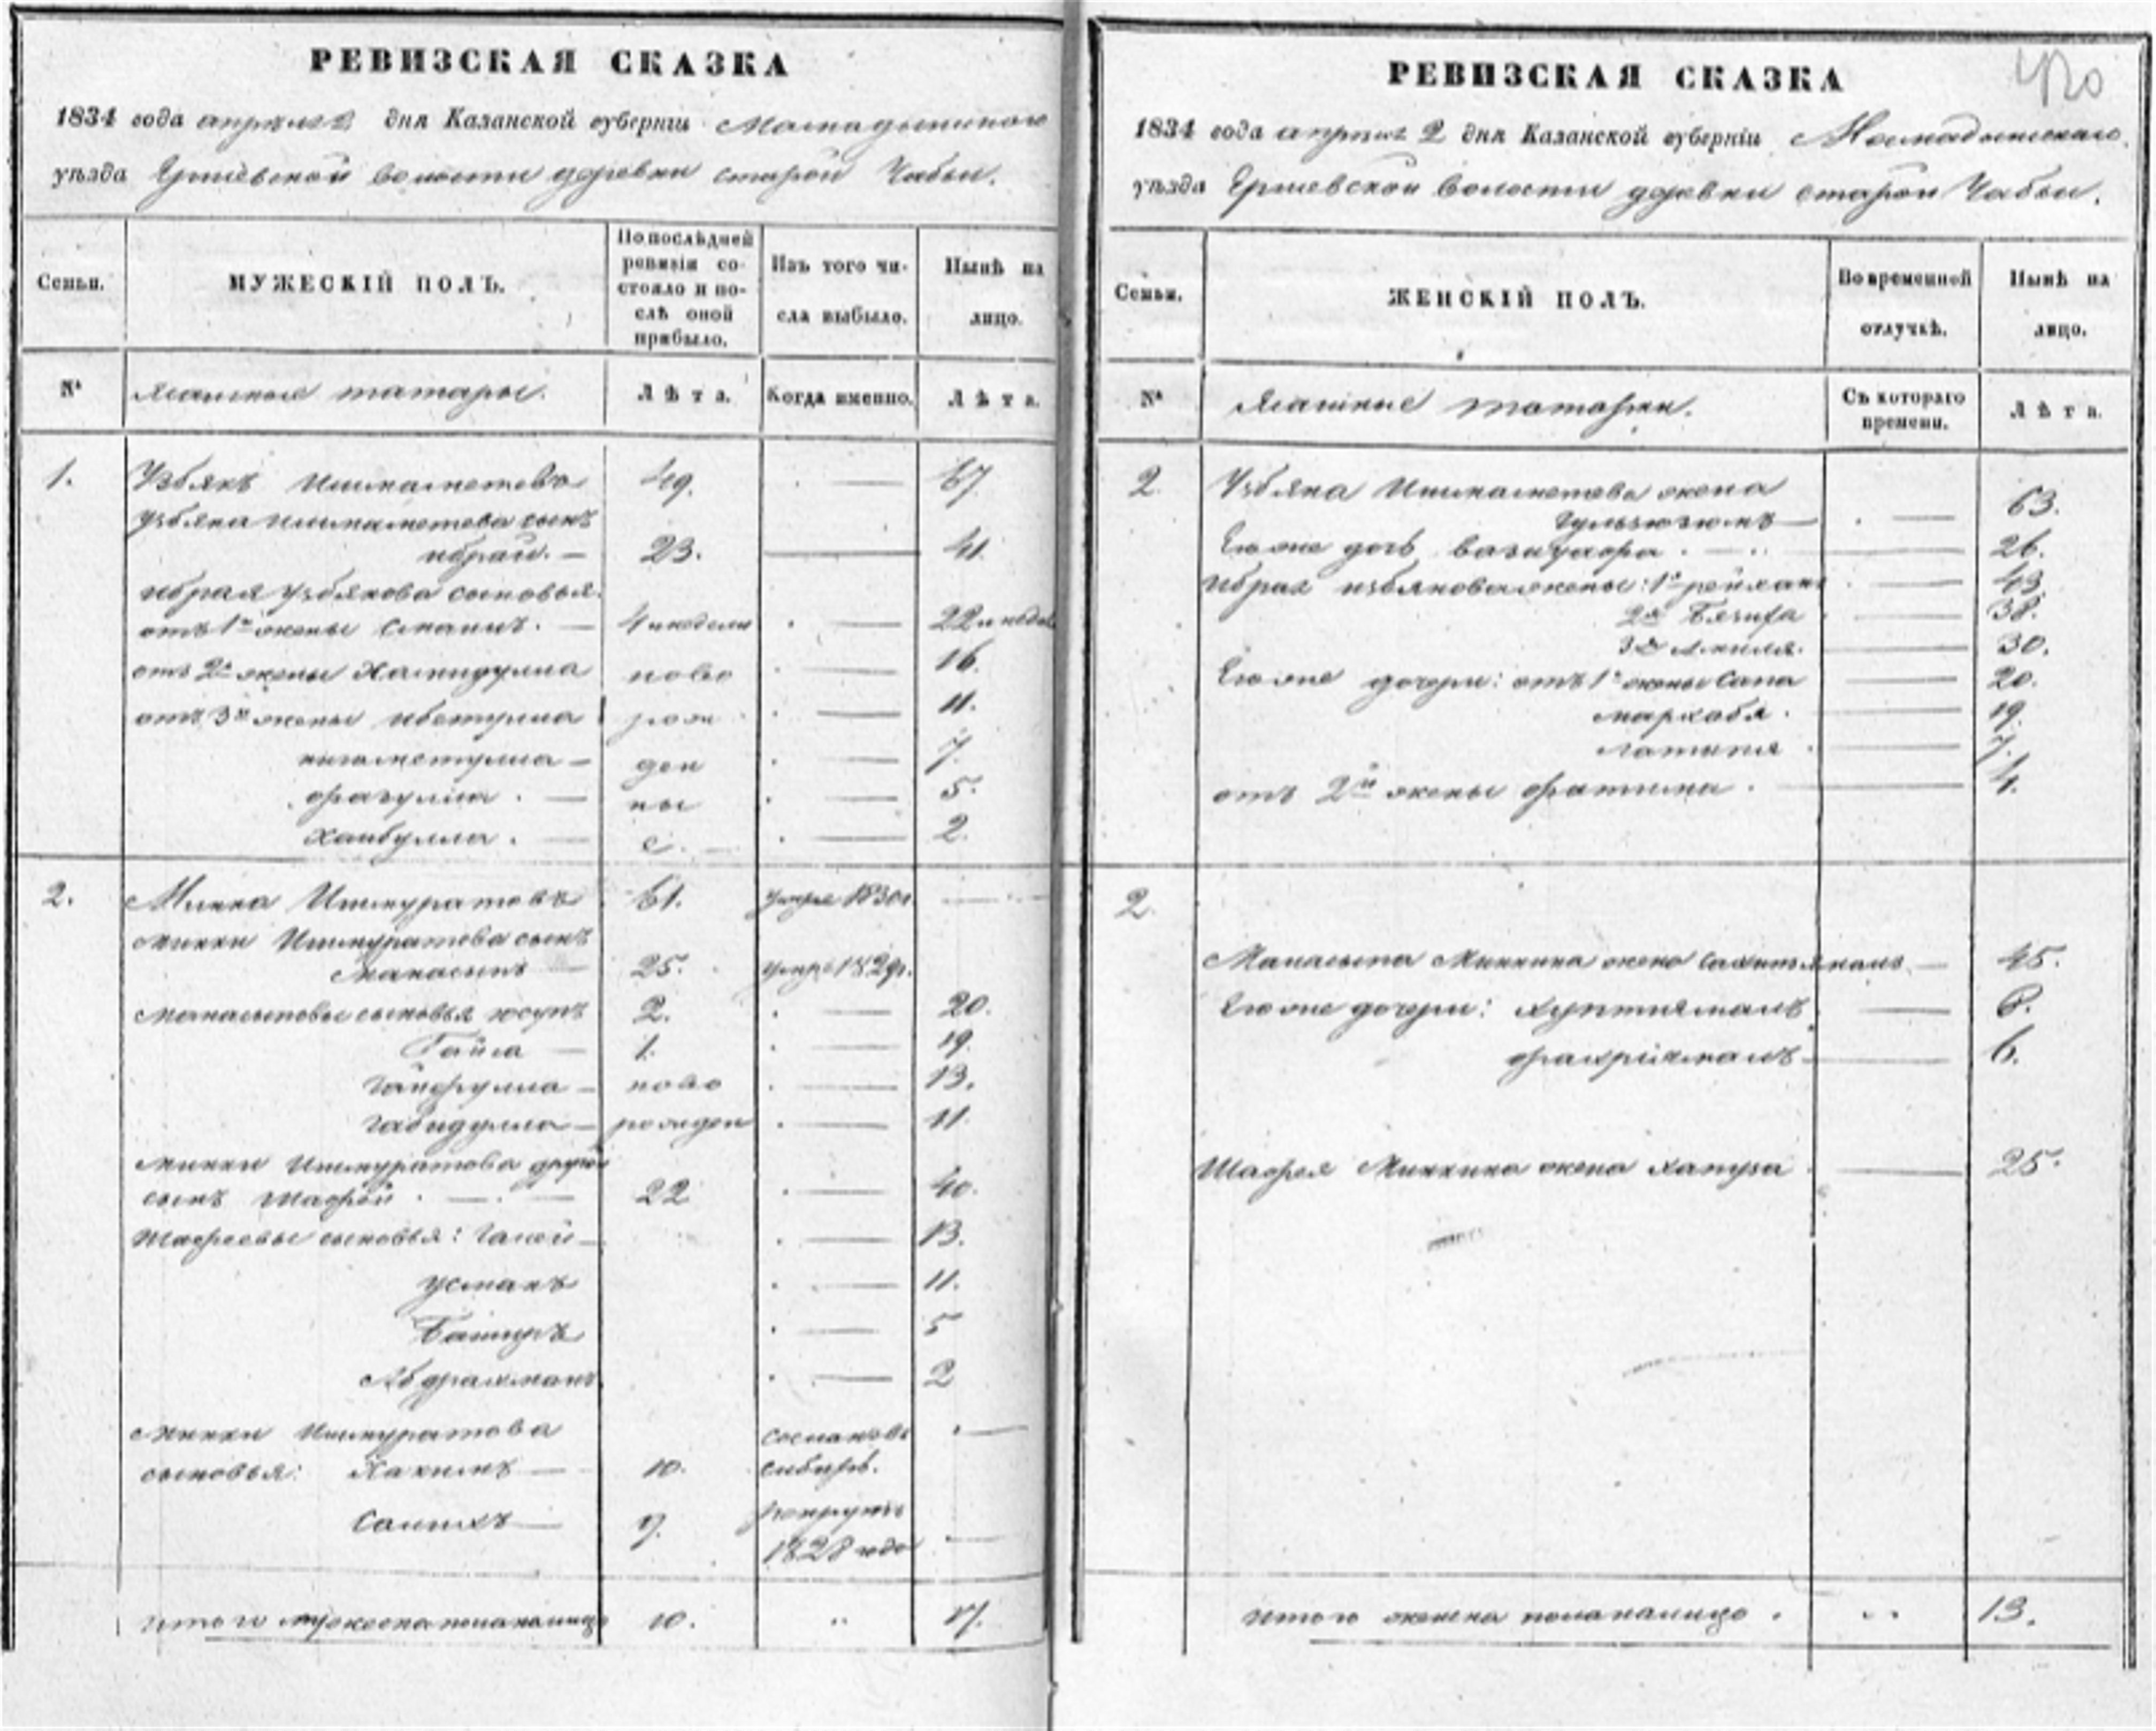 РЕВИЗСКАЯ СКАЗКА
1834 года апреля 2 дня Казанской губерніи Мамадышскаго
уѣзда Ершевской волости деревни старой Чабьи.
Семьи.
МУЖЕСКІЙ ПОЛЪ.
По послѣдней ревизіи состояло и послѣ оной прибыло.
Изъ того числа выбыло.
Нынѣ на лицо.
№
Ясашные татары.
Лѣта.
Когда именно.
Лѣта.
1. Узбякъ Ишмаметевъ 49. — 67.
Узбяка Ишмаметева сынъ
ибрай. — 23. — 41.
ибрая Узбякова сыновья
отъ 1й жены Смаилъ. — 4 недели — 22 недел
отъ 2й жены Хамидулла ново — 16.
отъ 3й жены ибетулла рож — 11.
нигметулла — ден — 7.
фазулла. — ны — 5.
Хаибулла. — е. — 2.
2. Минка Ишмуратовъ 61. умре 1830г. —
минки Ишмуратова сынъ
Манасыпъ — 25. умре 1829г.
Манасыповы сыновья юсупъ 2. — 20.
Гайса — 1. — 19.
Гайфулла — ново — 13.
Габидулла — рожден — 11.
минки Ишмуратова другой
сынъ Шафей. — 22. — 40.
Шафеевы сыновья: Галей — — 13.
Усманъ — 11.
Баширъ — 5
Абдрахманъ — 2
минки Ишмуратова сосланъ въ —
сыновья: Рахимъ — 10. сибирь.
Салихъ — 9. рекрутъ
1828 года —
итого мужеска пола налицо 10. " 17.
РЕВИЗСКАЯ СКАЗКА
420
1834 года апреля 2 дня Казанской губерніи Мамадышскаго
уѣзда Ершевской волости деревни старой Чабьи.
Семьи.
ЖЕНСКІЙ ПОЛЪ.
Во временной отлучкѣ.
Нынѣ на лицо.
№
Ясашные татарки.
Съ котораго времени.
Лѣта.
2. Узбяка Ишмаметева жена
— 63.
Его же дочь — 26.
ибрая узбякова жены: 1я рейхана — 43.
2я Бязифа — 38.
3я — 30.
Его же дочери: отъ 1й жены Сапа — 20.
мархабя. — 19.
латипя. — 7.
отъ 2й жены фатима. — 4.
2.
Манасыпа Минкина жена — 45.
Его же дочери: — 8.
— 6.
Шафея Минкина жена — 25.
итого женска пола налицо. " 13.